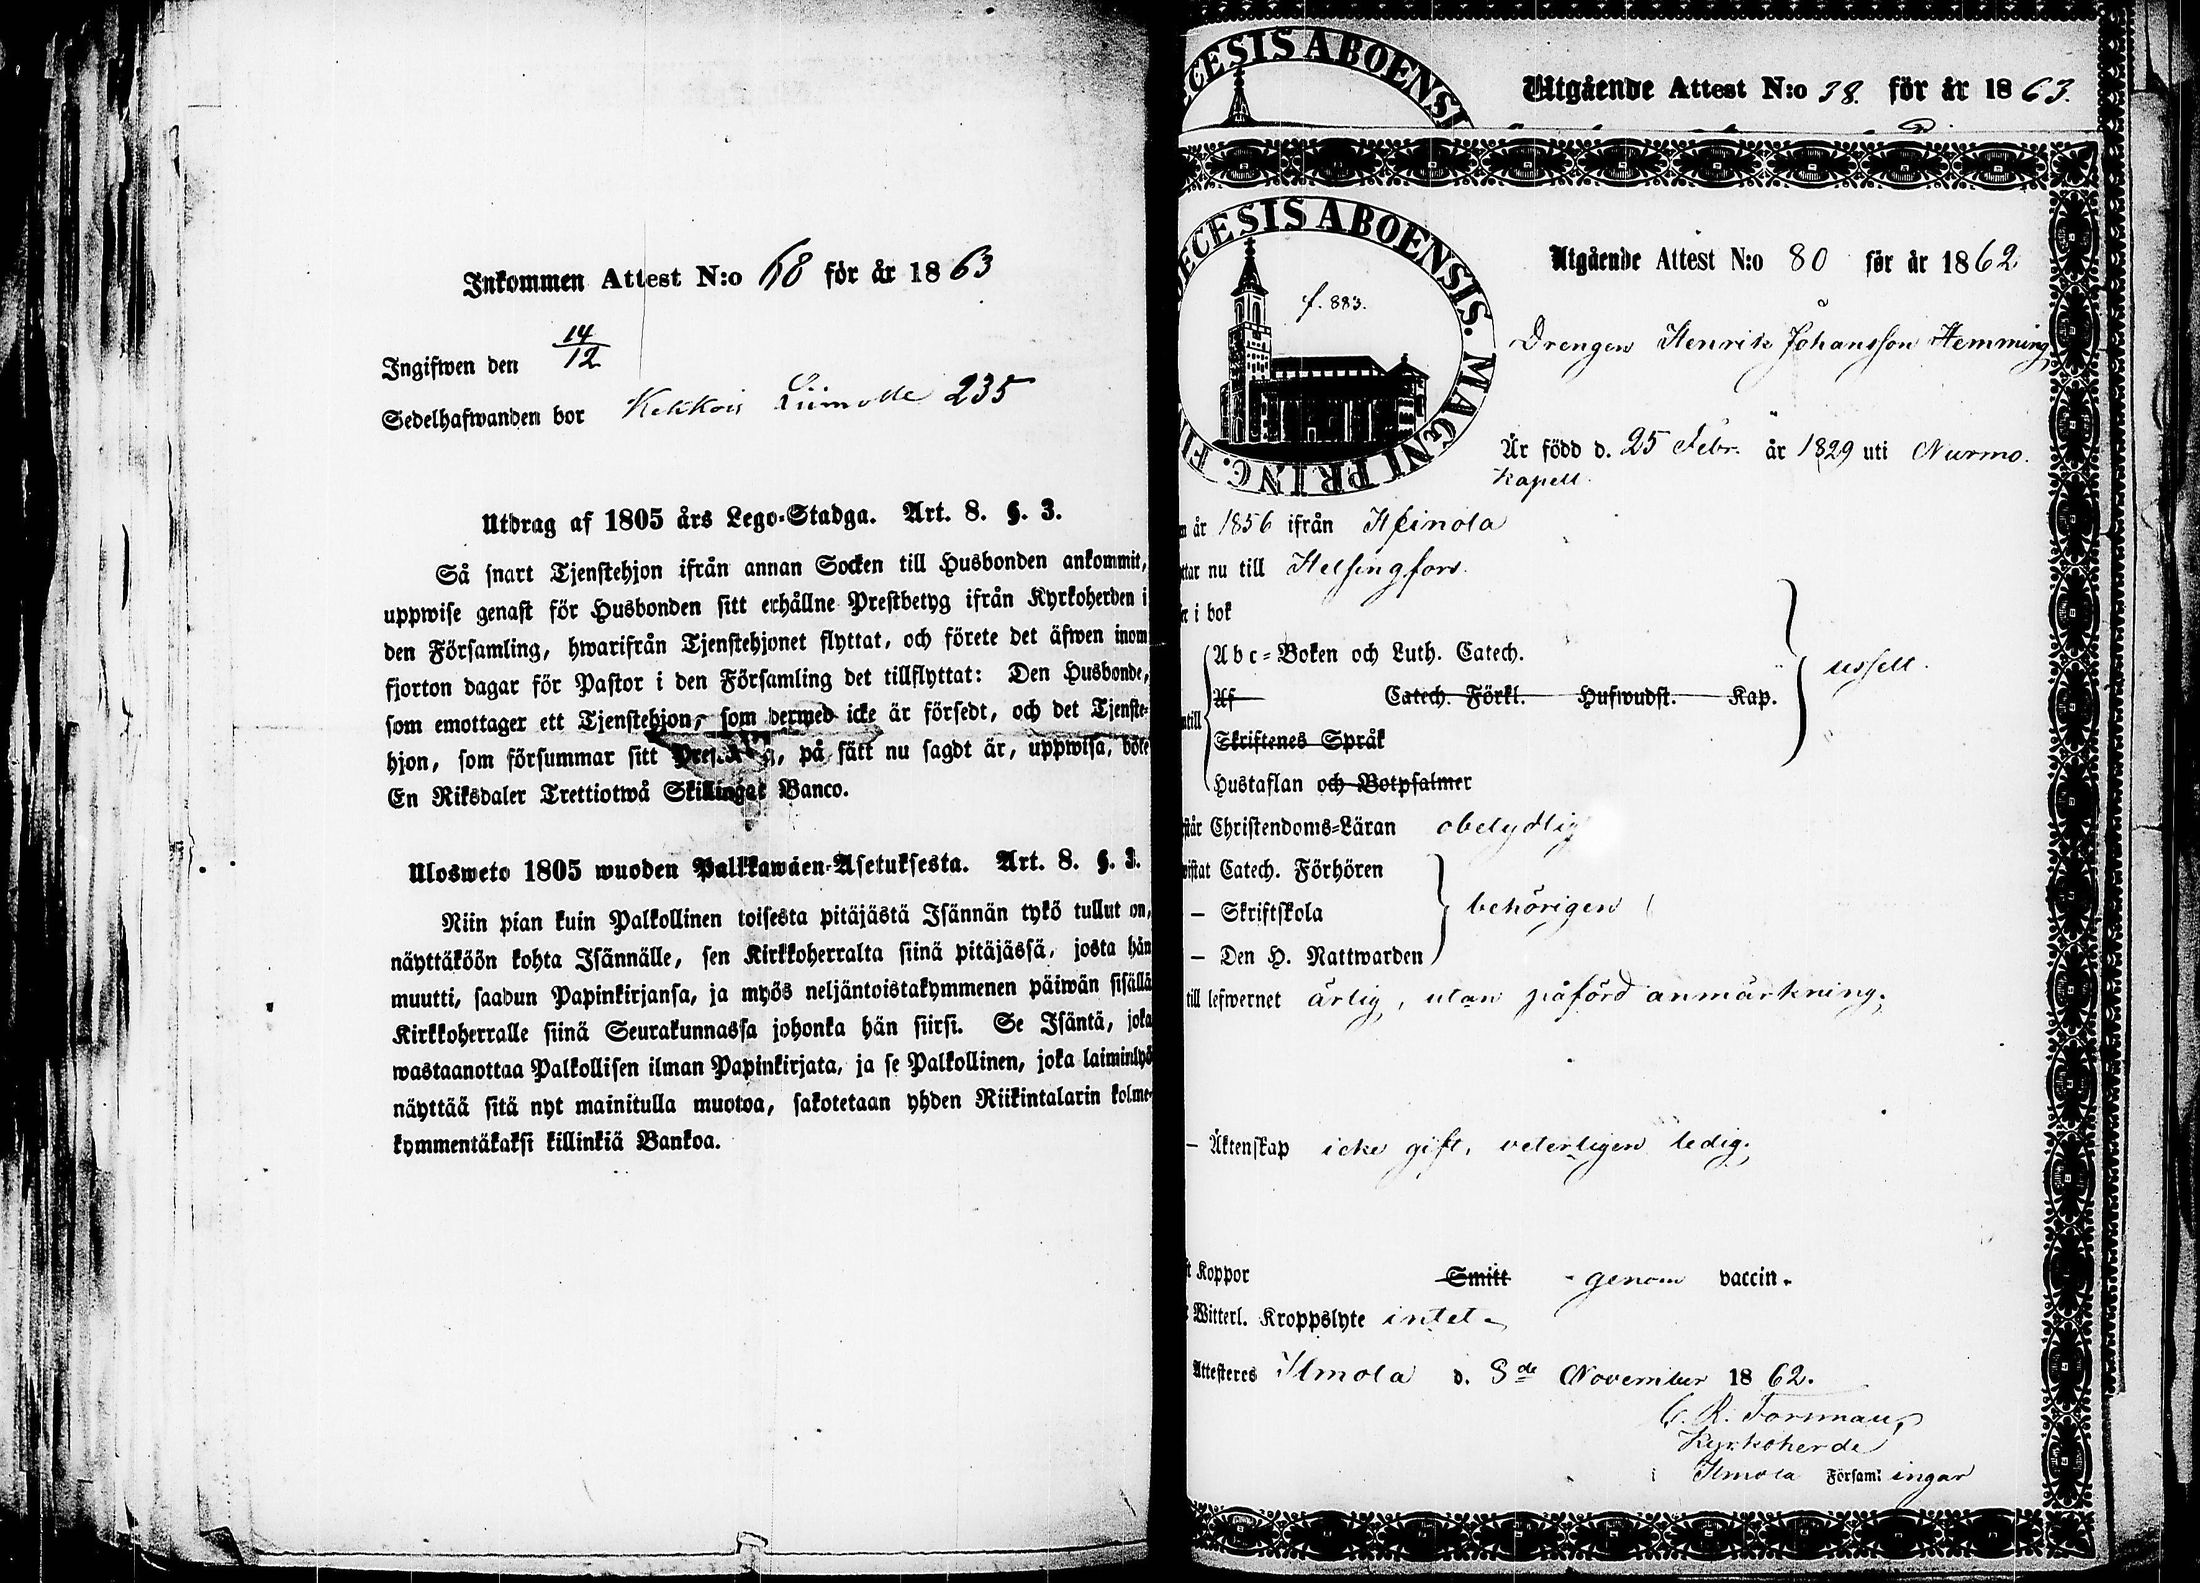 Inkommen Attest N:o 68 för år 1863
Ingifwen den 14/12
Sedelhafwanden bor Kekkois 235
Utdrag af 1805 års Lego-Stadga. Art. 8. §. 3.
Så snart Tjenstehjon ifrån annan Socken till Husbonden ankommit,
uppwise genast för Husbonden sitt erhållne Prestbetyg ifrån Kyrkoherden i
den Församling, hwarifrån Tjenstehjonet flyttat, och förete det äfwen inom
fjorton dagar för Pastor i den Församling det tillflyttat: Den Husbonde,
som emottager ett Tjenstehjon, som dermed icke är försedt, och det Tjenste-
hjon, som försummar sitt på sätt nu sagdt är, uppwisa, böte
En Riksdaler Trettiotwå Skillingar Banco.
Ulosweto 1805 wuoden Palkkawäen-Asetuksesta. Art. 8. §. 3.
Niin pian kuin Palkollinen toisesta pitäjästä Isännän tykö tullut on,
näyttäköön kohta Isännälle, sen Kirkkoherralta siinä pitäjässä, josta hän
muutti, saadun Papinkirjansa, ja myös neljäntoistakymmenen päiwän sisällä
Kirkkoherralle siinä Seurakunnassa johonka hän siirsi. Se Isäntä, joka
wastaanottaa Palkollisen ilman Papinkirjata, ja se Palkollinen, joka laiminlyö
näyttää sitä nyt mainitulla muotoa, sakotetaan yhden Riikintalarin kolme-
kymmentäkaksi killinkiä Bankoa.
ECESIS ABOENSI
Utgående Attest N:o 38. för år 1863.
ECESIS ABOENSIS. MAGNI PRINC. FI
f. 883.
Utgående Attest N:o 80 för år 1862
Drengen Henrik Johansson Hemming
Är född d. 25 Febr. år 1829 uti Nurmo.
Kapell.
år 1856 ifrån Heinola
nu till Helsingfors.
i bok
Abc-Boken och Luth. Catech.
usselt.
Af Catech. Förkl. Hufwudst. Kap.
Skriftenes Språk
Hustaflan och Botpsalmer
Christendoms-Läran obetydlig
Catech. Förhören
— Skriftskola behörigen
— Den H. Nattwarden
till lefwernet ärlig, utan påförd anmärkning.
— Äktenskap icke gift, veterligen ledig.
Koppor Smitt - genom vaccin.
Witterl. Kroppslyte intet.
Attesteres Ilmola d. 8de November 1862.
C. R. Forsman,
Kyrkoherde
i Ilmola Församlingar